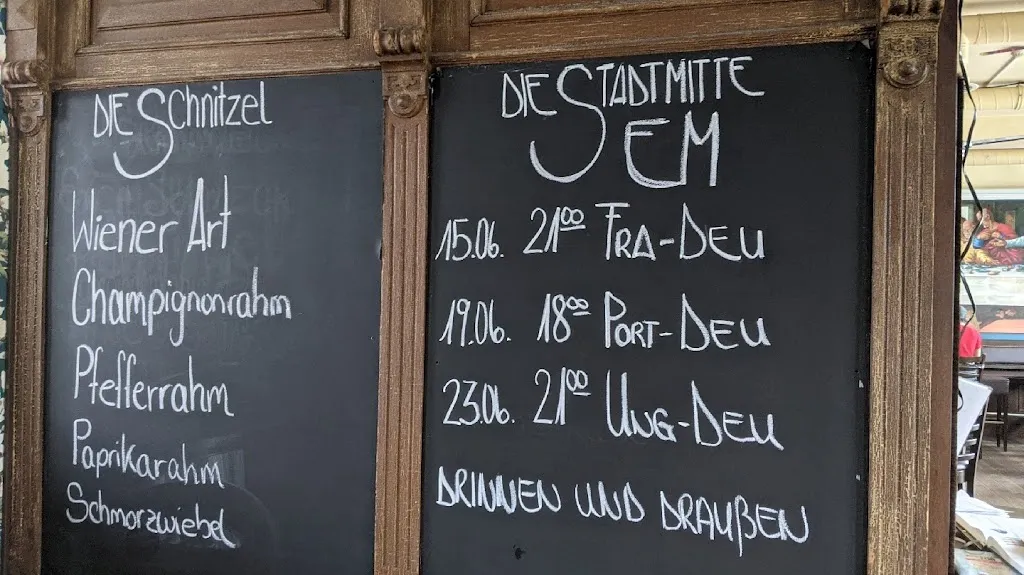 DIE SCHNITZEL
Wiener Art
Champignonrahm
Pfefferrahm
Paprikarahm
Schmorzwiebel
DIE STADTMITTE
EM
15.06. 21⁰⁰ FRA-DEU
19.06. 18⁰⁰ PORT-DEU
23.06. 21⁰⁰ UNG-DEU
DRINNEN UND DRAUßEN